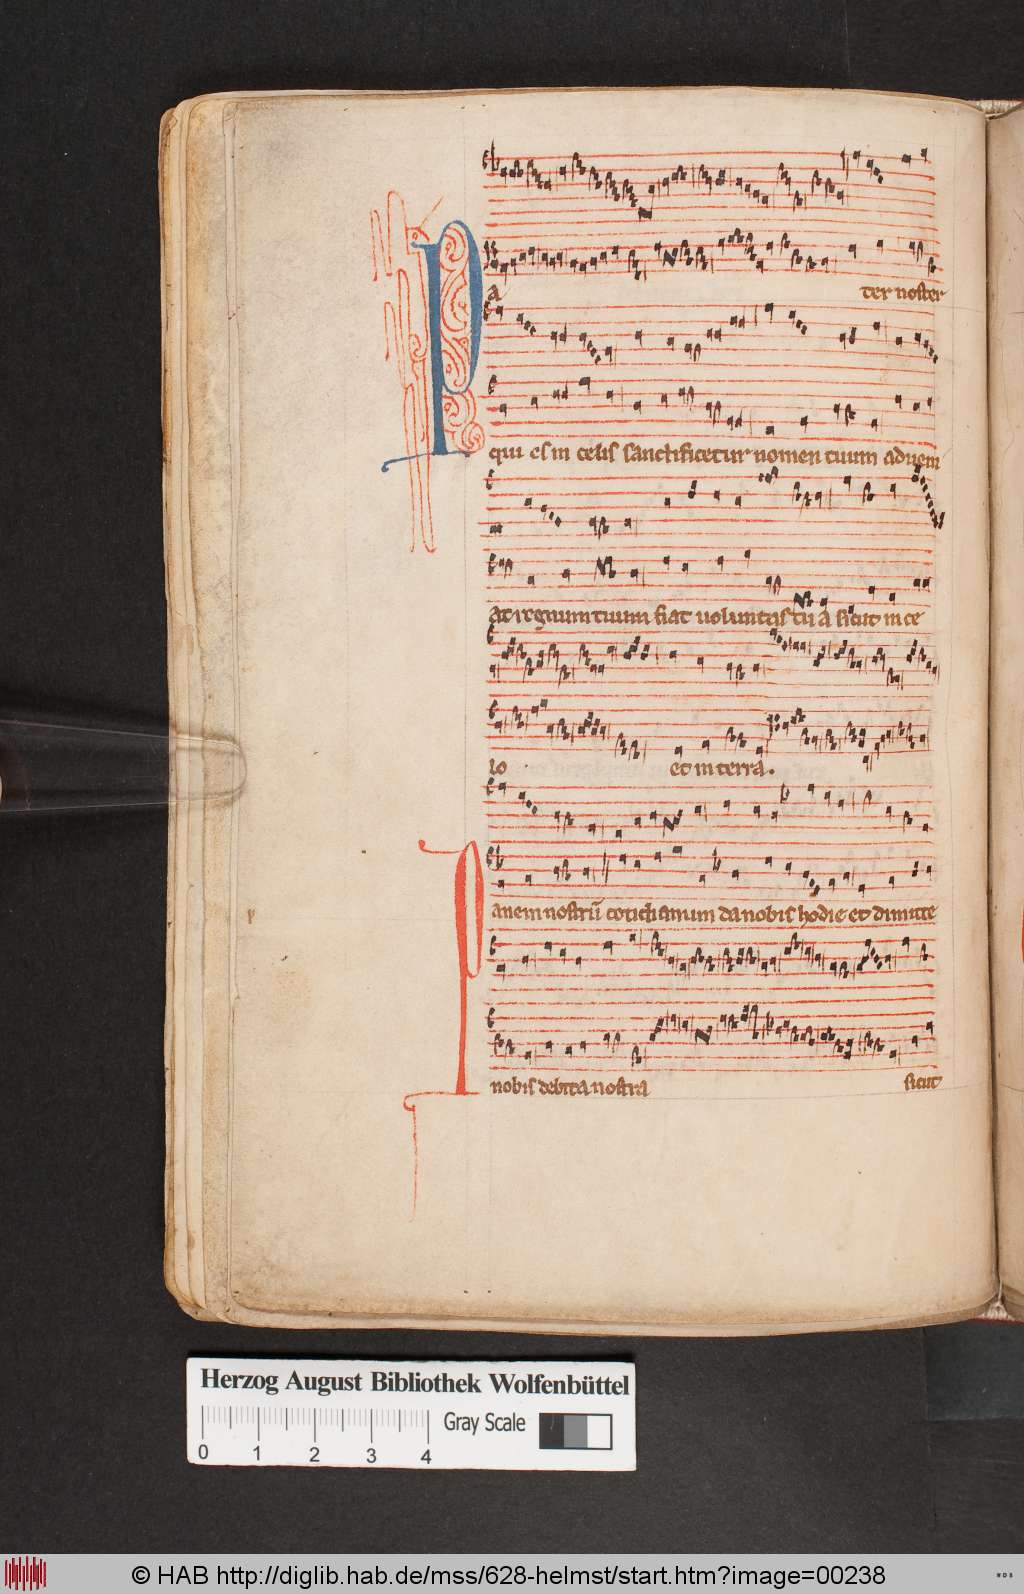 Pa ter noster
qui es in celis sanctificetur nomen tuum adueni
at regnum tuum fiat uoluntas tu a sicut in ce
lo et in terra.
Panem nostrū cotidianum da nobis hodie et dimitte
nobis debita nostra sicut
Herzog August Bibliothek Wolfenbüttel
Gray Scale
0 1 2 3 4
© HAB http://diglib.hab.de/mss/628-helmst/start.htm?image=00238